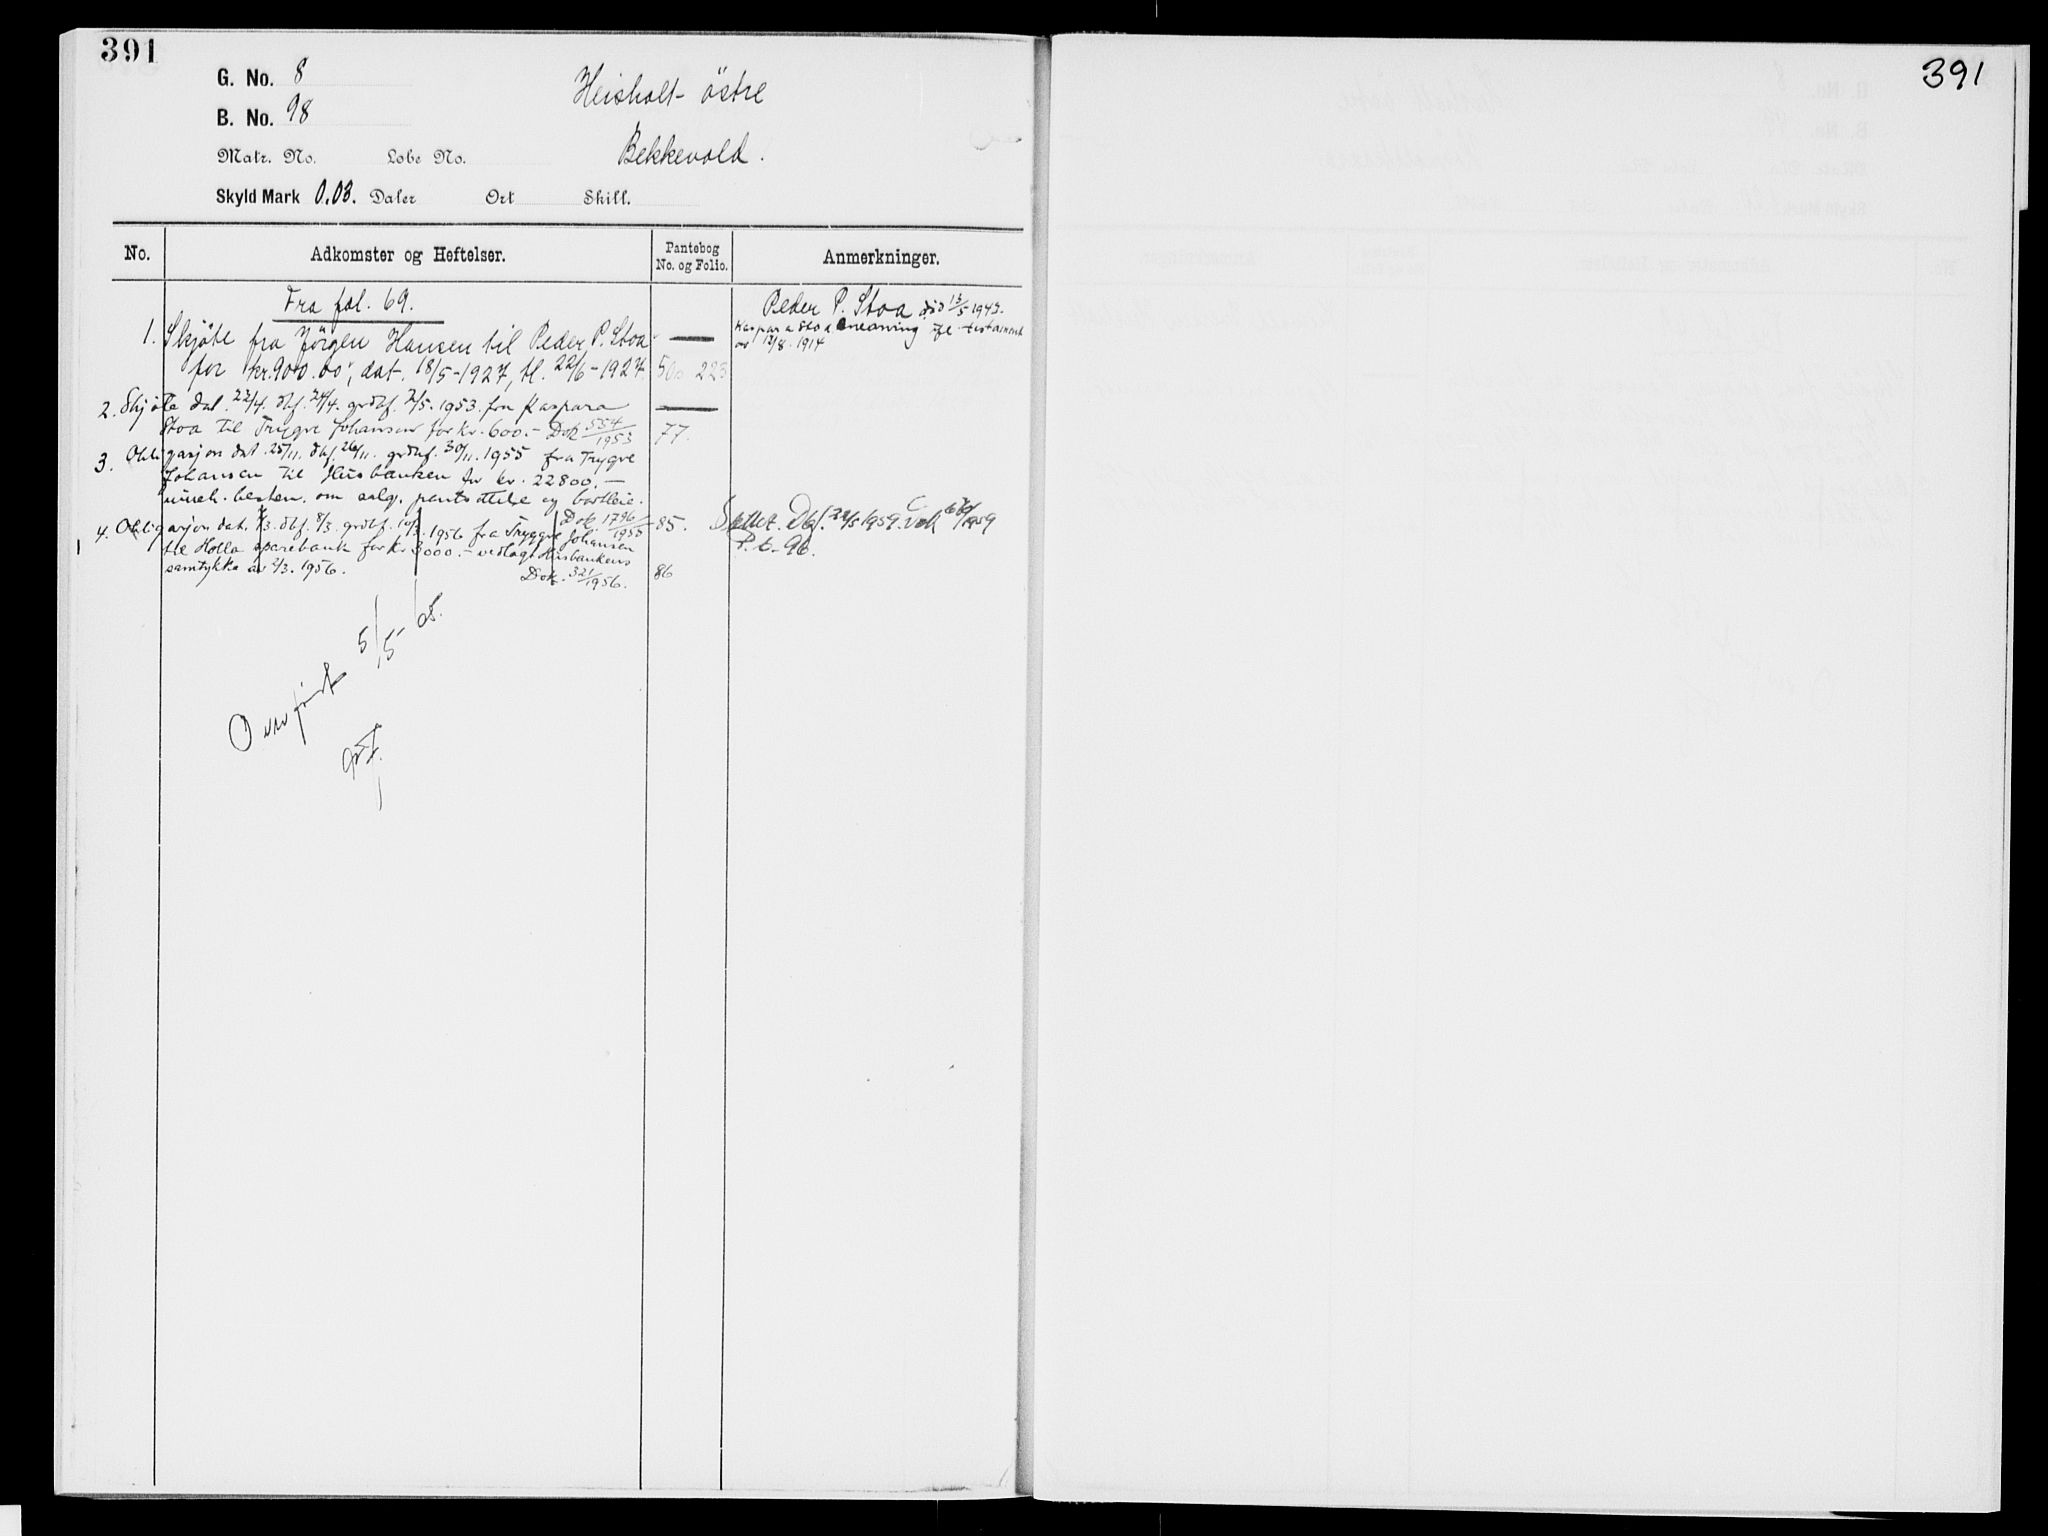 391
G. No. 8
Heisholt östre
B. No. 98
Bekkevold.
Matr. No. Løbe No.
Skyld Mark 0.03. Daler Ort Skill.
No. Adkomster og Heftelser. Pantebog No. og Folio. Anmerkninger.
Fra fol. 69.
1. Skjöte fra Jörgen Hansen til Peder P. Stoa
for kr. 900.00, dat. 18/5-1927, tl. 22/6-1927. 50 223
Peder P. Stoa död 13/5 1943.
Kaspara Stoa enearving ifl. testament
av 12/8. 1914
2. Skjøte dat. 22/4. dbf. 24/4. grdbf. 2/5. 1953. fra Kaspara
Stoa til Trygve Johansen for kr. 600.- Dok 554/1953 77.
3. Obligasjon dat. 25/11. dbf. 26/11. grdbf. 30/11. 1955 fra Trygve
Johansen til Husbanken for kr. 22800.-
inneh. bestem. om salg, pantsettelse og bortleie.
Dok 1796/1955 85.
4. Obligasjon dat. /3. dbf. 8/3. grdbf. 10/3. 1956 fra Trygve Johansen
til Holla sparebank for kr. 3000.- vedlagt Husbankens
samtykke av 2/3. 1956.
Dok. 321/1956. 86
Slettet. Dbf. 22/5 1959. Dok /1959
P.b. 96.
Overført 5/5-65.
391